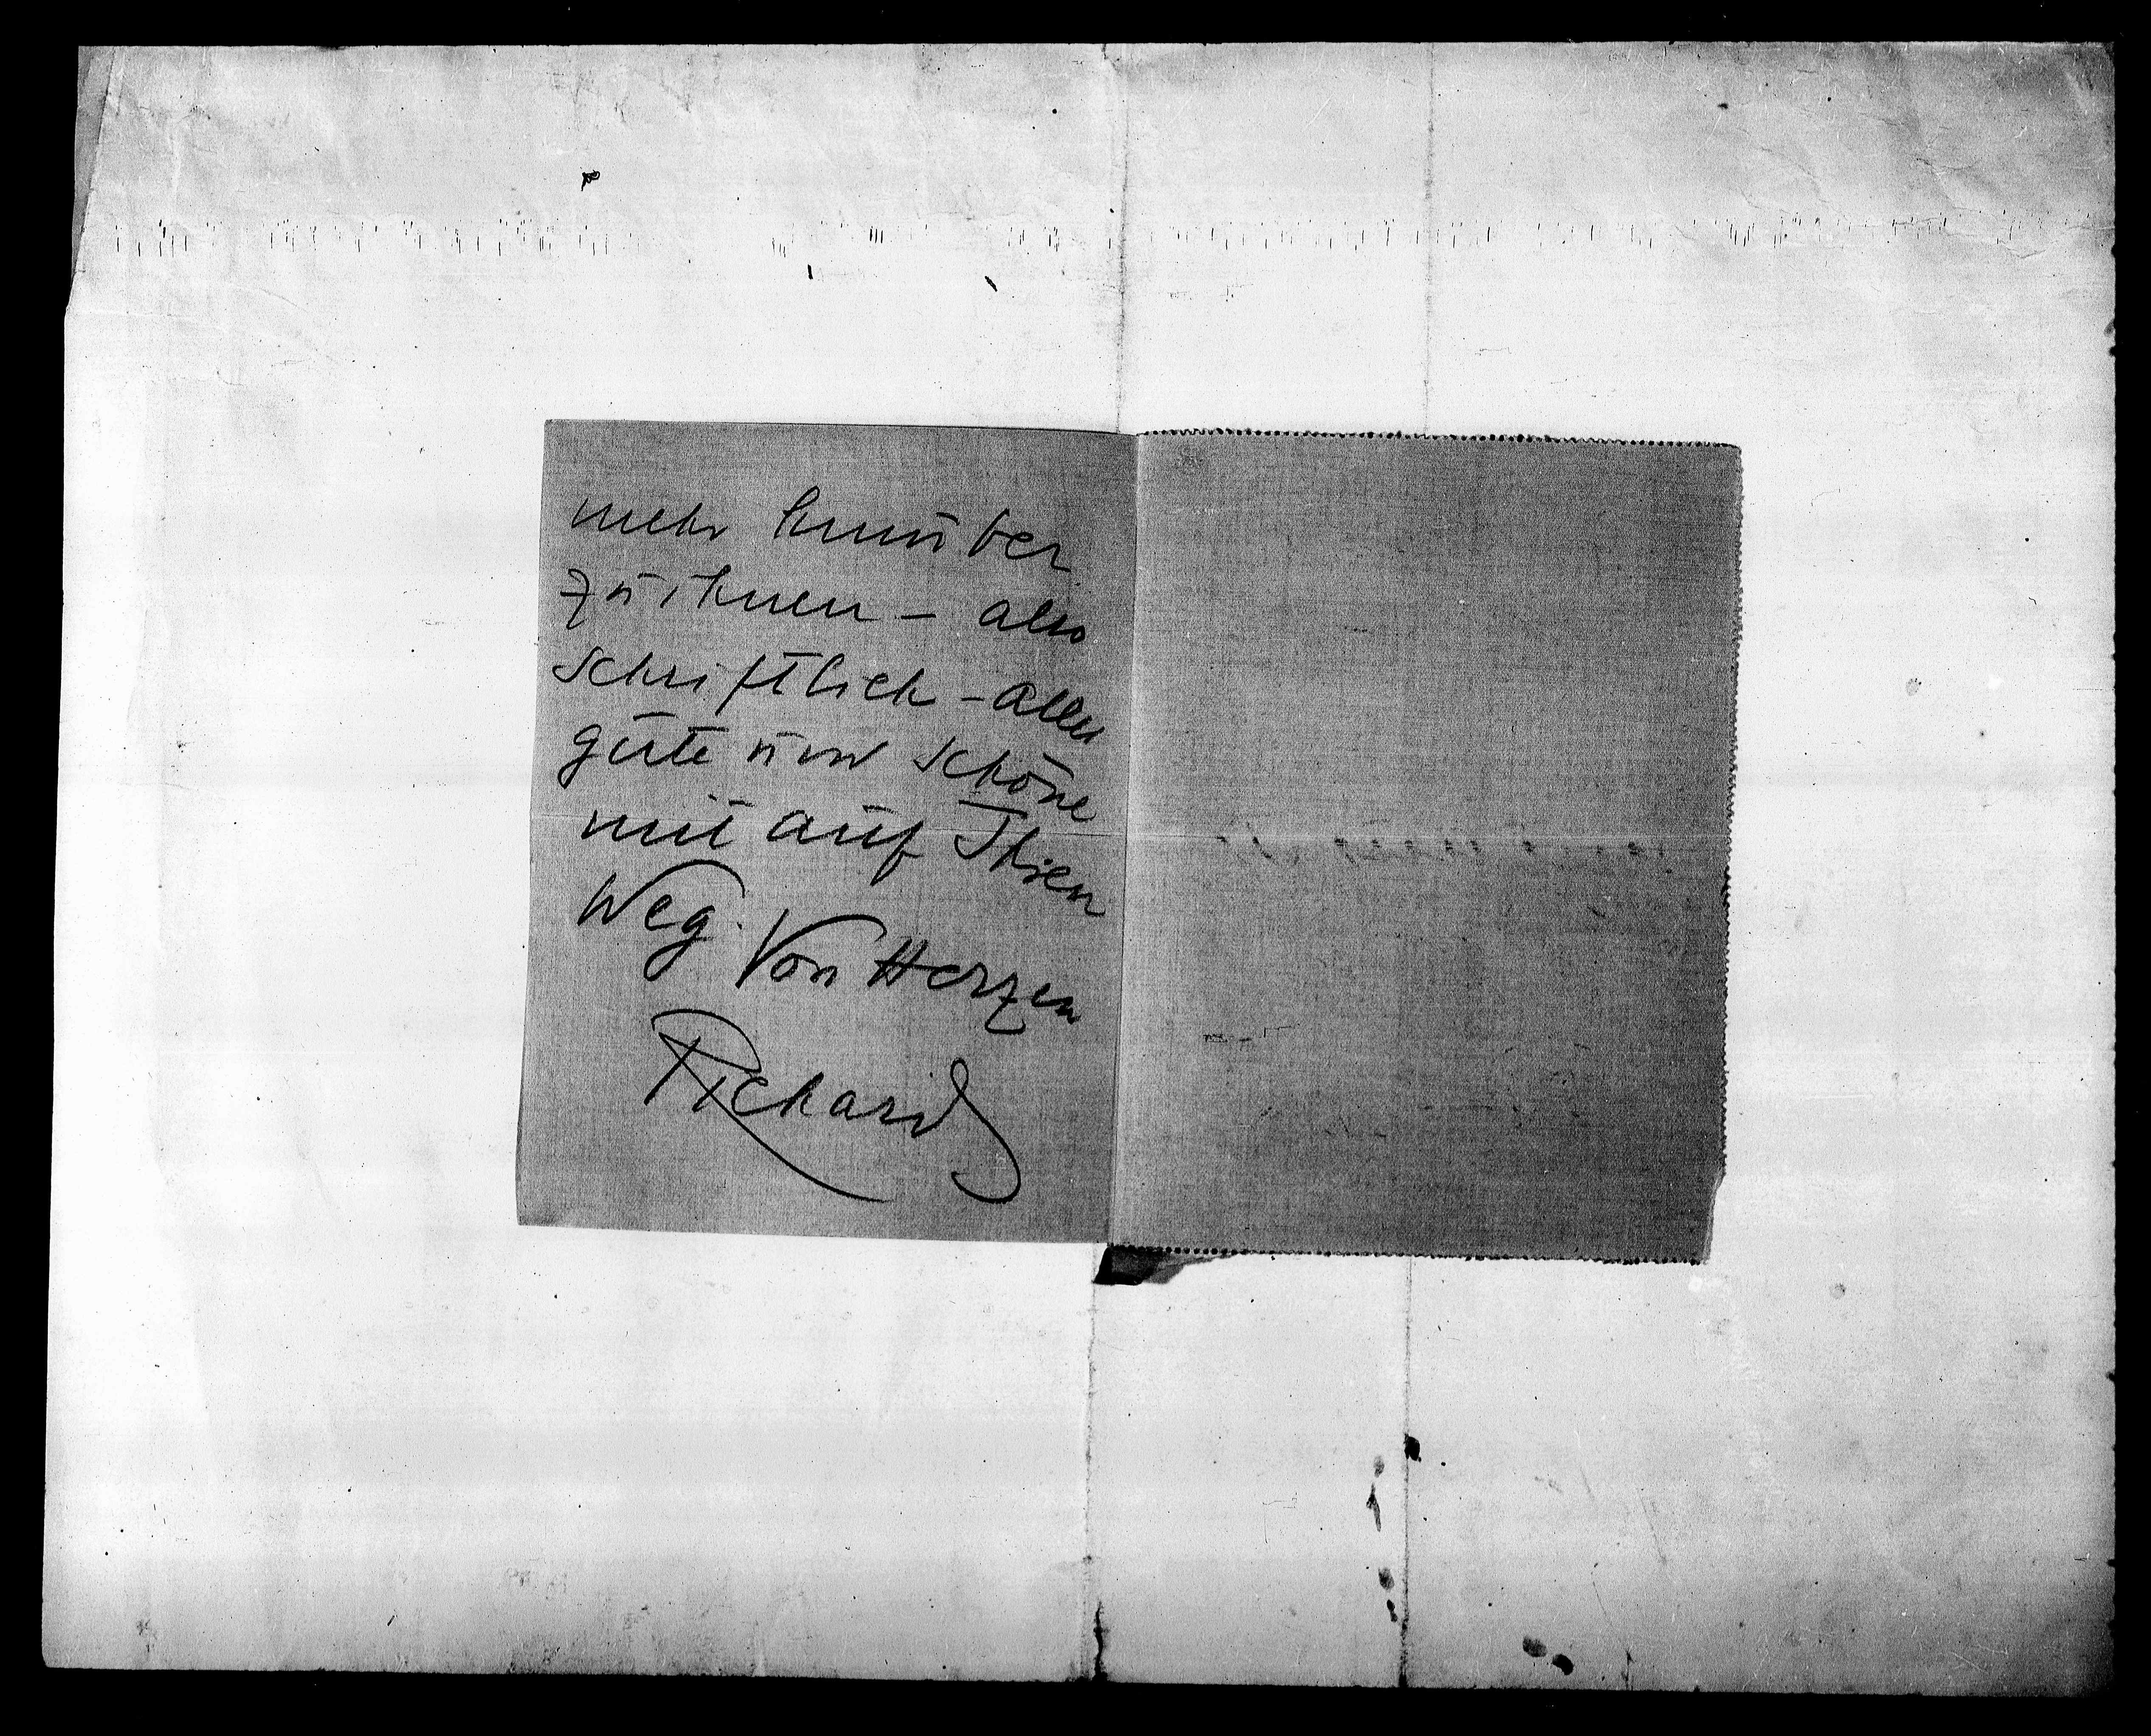 mehr hinüber
zu ihnen - also
schriftlich - alles
gute und schöne
mit auf Ihren
Weg. Von Herzen
Richard